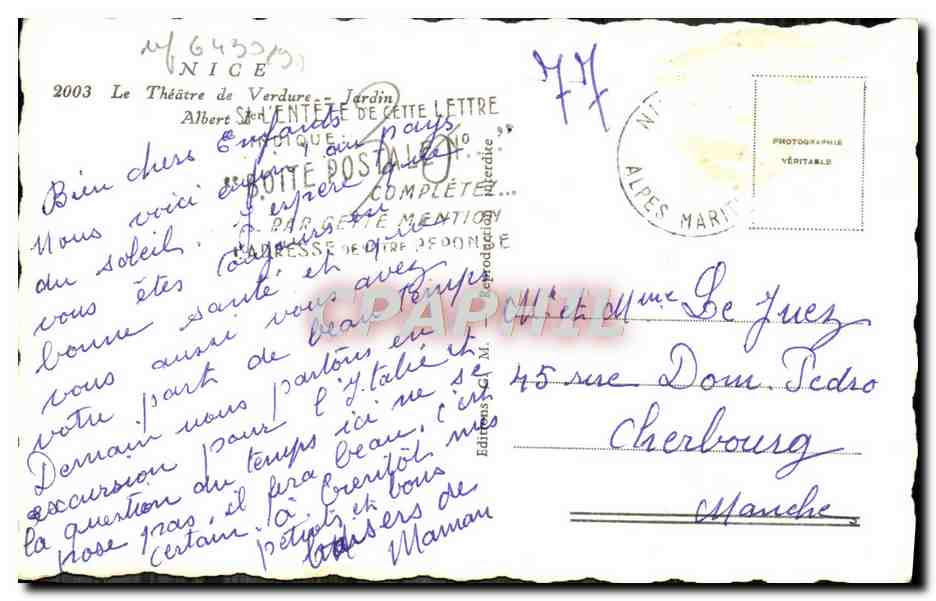 N I C E
2003 Le Théâtre de Verdure - Jardin
Albert 1er
SI L'ENTÊTE DE CETTE LETTRE
INDIQUE :
"BOITE POSTALE N° ..."
COMPLÉTEZ...
PAR CETTE MENTION
L'ADRESSE DE VOTRE RÉPONSE
Bien chers Enfants
Nous voici enfin au pays
du soleil. J'espère que
vous êtes toujours en
bonne santé et que
vous aussi vous avez
votre part de beau temps
Demain nous partons en
excursion pour l'Italie et
la question du temps ici ne se
pose pas, il fera beau, c'est
certain. à bientôt mes
petits et bons
baisers de
Maman
Editions G. M. - Reproduction interdite
77
ALPES MARIT
PHOTOGRAPHIE
VÉRITABLE
Mr et Mme Le Juez
45 rue Dom. Pedro
Cherbourg
Manche
CPAPHIL